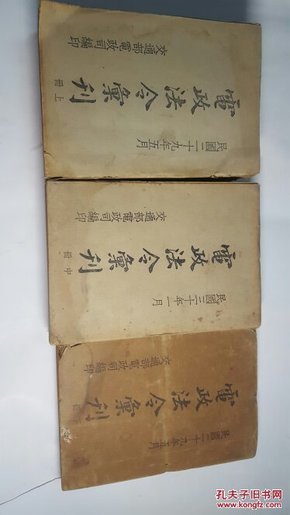 民國二十九年五月
電政法令彙刊
上冊
交通部電政司編印
民國三十年一月
電政法令彙刊
中冊
交通部電政司編印
民國二十九年五月
電政法令彙刊
交通部電政司編印
孔夫子旧书网